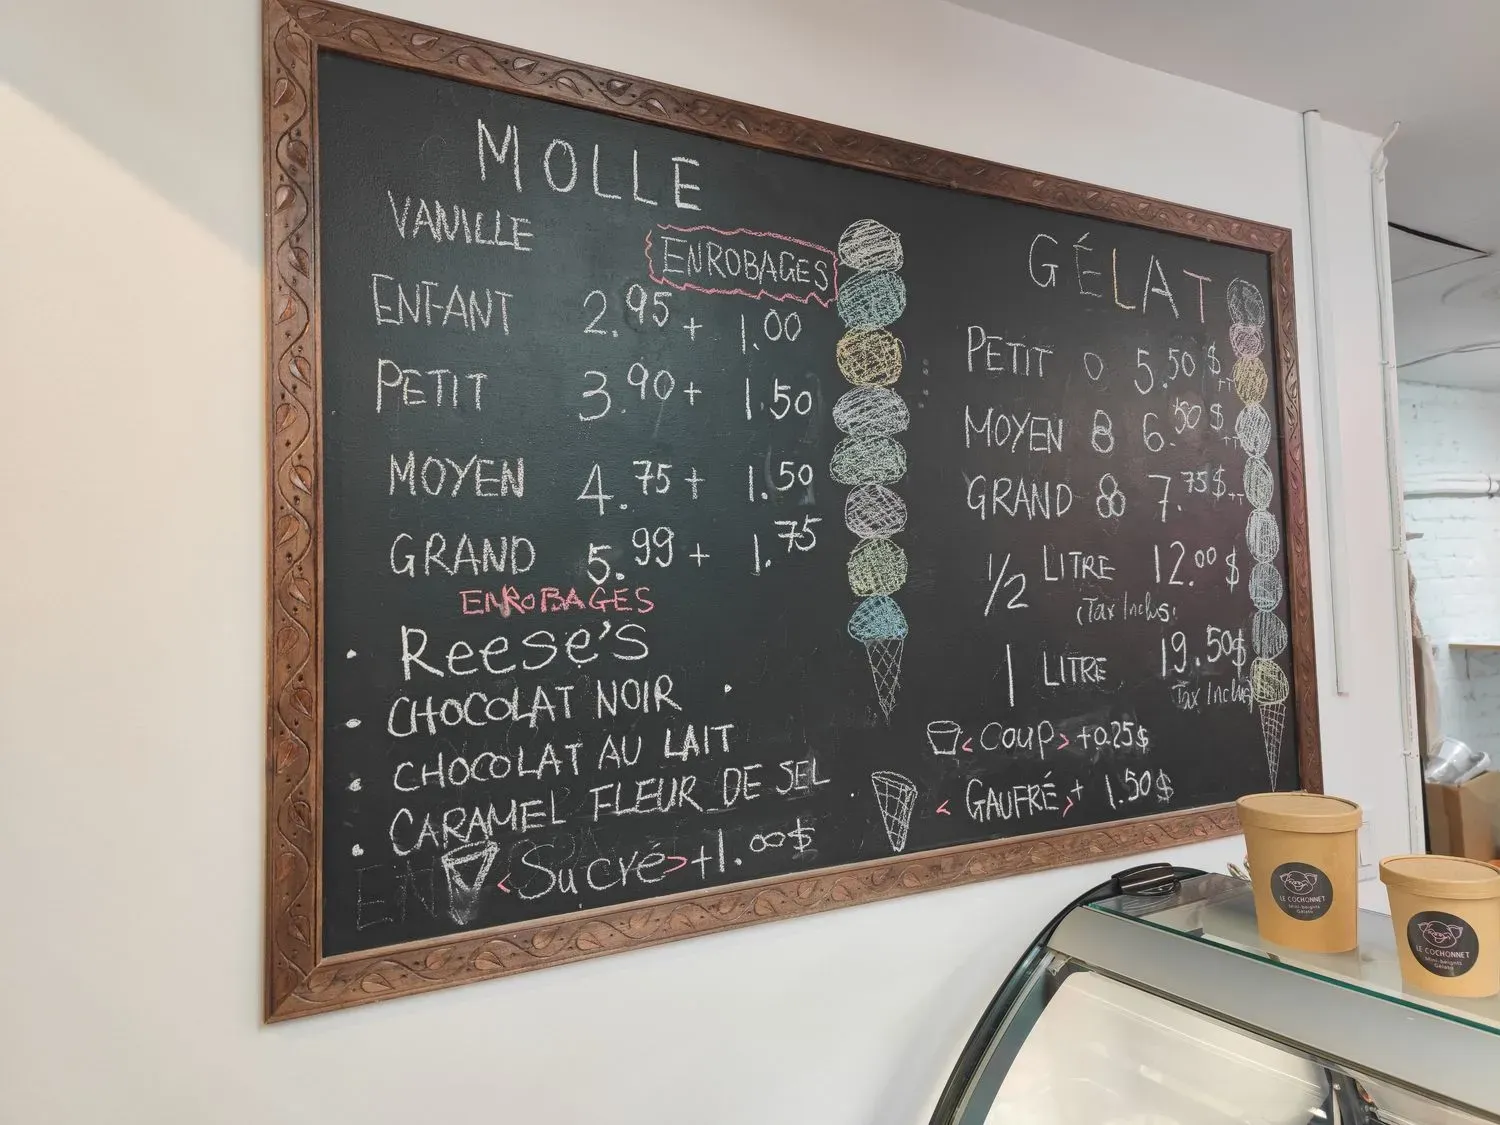 MOLLE
VANILLE
ENROBAGES
ENFANT 2.95 + 1.00
PETIT 3.90 + 1.50
MOYEN 4.75 + 1.50
GRAND 5.99 + 1.75
ENROBAGES
• Reese's
• CHOCOLAT NOIR
• CHOCOLAT AU LAIT
• CARAMEL FLEUR DE SEL
<Sucré> +1.00$
GÉLAT
PETIT 5.50 $ ++
MOYEN 6.50 $ ++
GRAND 7.75 $ ++
1/2 LITRE 12.00 $
(Tax Inclus)
1 LITRE 19.50$
Tax Inclus
<Coup> +0.25$
<GAUFRÉ> + 1.50$
LE COCHONNET
Mini-beignets
Gélato
LE COCHONNET
Mini-beignets
Gélato